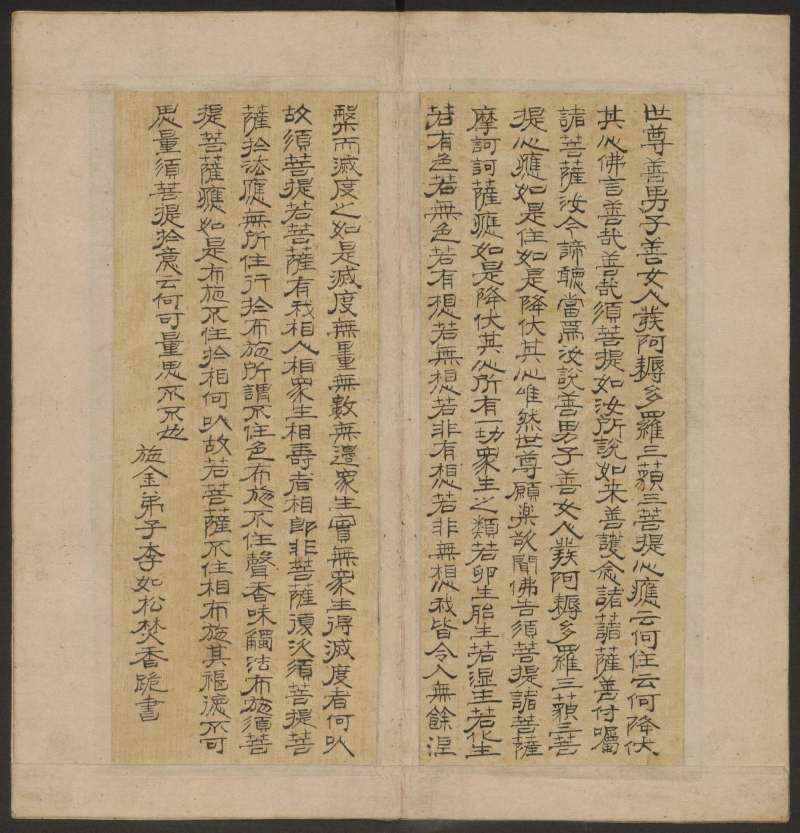 世尊善男子善女人發阿耨多羅三藐三菩提心應云何住云何降伏
其心佛言善哉善哉須菩提如汝所說如来善護念諸菩薩善付囑
諸菩薩汝今諦聽當爲汝說善男子善女人發阿耨多羅三藐三菩
提心應如是住如是降伏其心唯然世尊願樂欲聞佛告須菩提諸菩薩
摩訶薩應如是降伏其心所有一切衆生之類若卵生胎生若湿生若化生
若有色若無色若有想若無想若非有想若非無想我皆令入無餘涅
槃而滅度之如是滅度無量無數無邊衆生實無衆生得滅度者何以
故須菩提若菩薩有我相人相衆生相壽者相即非菩薩復次須菩提菩
薩於法應無所住行於布施所謂不住色布施不住聲香味觸法布施須菩
提菩薩應如是布施不住於相何以故若菩薩不住相布施其福德不可
思量須菩提於意云何可量思不不也
施金弟子李如松焚香跪書